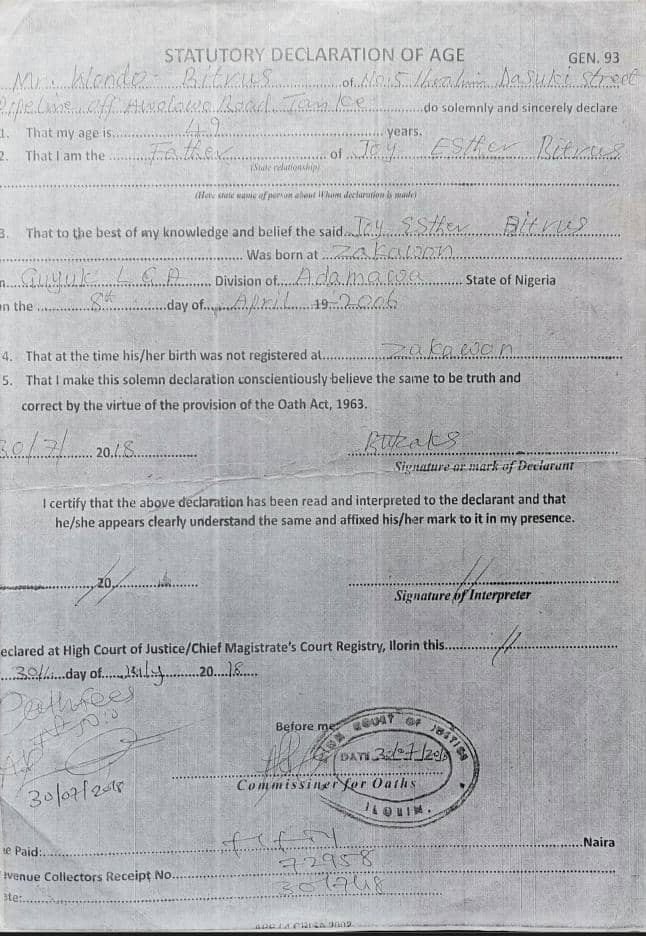 STATUTORY DECLARATION OF AGE
GEN. 93
Mr. Wondo Bitrus of No: 5 Ibrahim Dasuki Street
Pipeline off Awolowo Road, Tanke do solemnly and sincerely declare
1. That my age is 49 years.
2. That I am the Father of Joy Esther Bitrus
(State relationship)
(Here state name of person about Whom declaration is made)
3. That to the best of my knowledge and belief the said Joy Esther Bitrus
Was born at Zakawon
n Guyuk L G A Division of Adamawa State of Nigeria
on the 8th day of April 19 2006
4. That at the time his/her birth was not registered at Zakawon
5. That I make this solemn declaration conscientiously believe the same to be truth and
correct by the virtue of the provision of the Oath Act, 1963.
30/7/ 2018
Signature or mark of Declarant
I certify that the above declaration has been read and interpreted to the declarant and that
he/she appears clearly understand the same and affixed his/her mark to it in my presence.
20
Signature of Interpreter
eclared at High Court of Justice/Chief Magistrate's Court Registry, Ilorin this
30th day of July 2018
Before me
HIGH COURT OF JUSTICE
DATE 30/07/2018
ILORIN.
Commissiner for Oaths
30/07/2018
ee Paid: fifty Naira
evenue Collectors Receipt No. 72958
ate: 301748